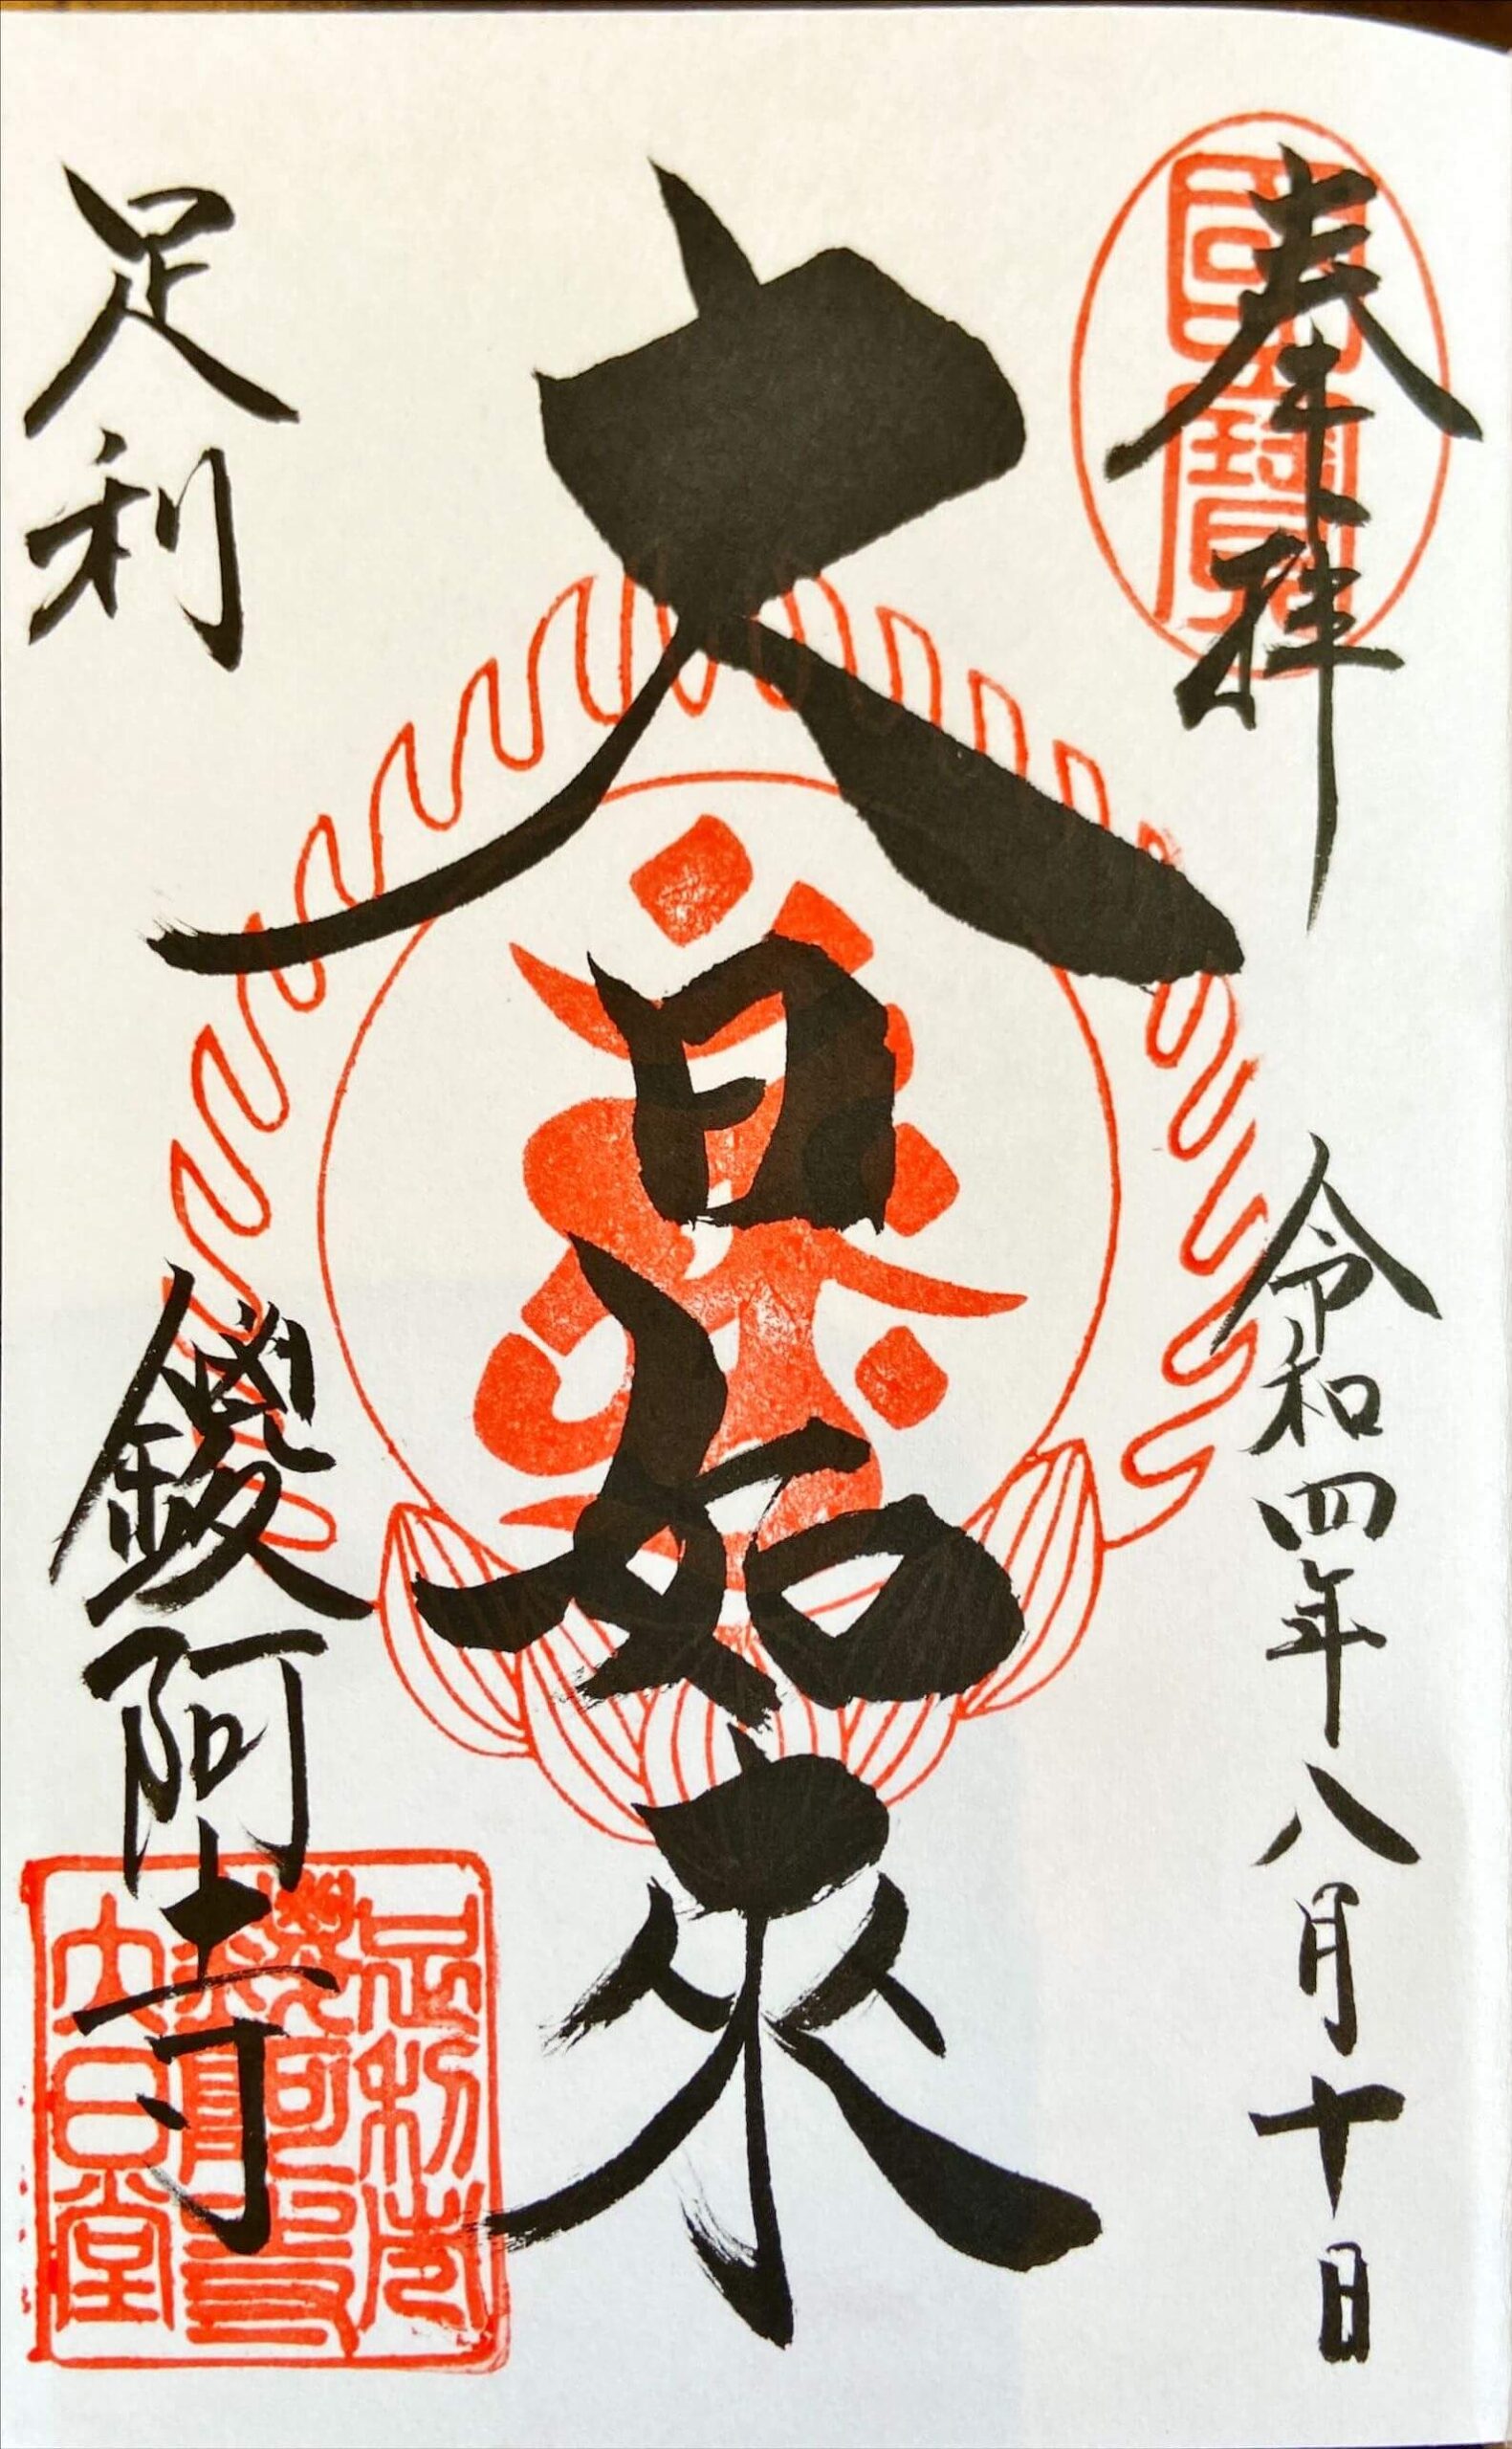 奉拝
令和四年八月十日
國寶
大日如来
足利
鑁阿寺
足利荘
鑁阿寺
大日堂